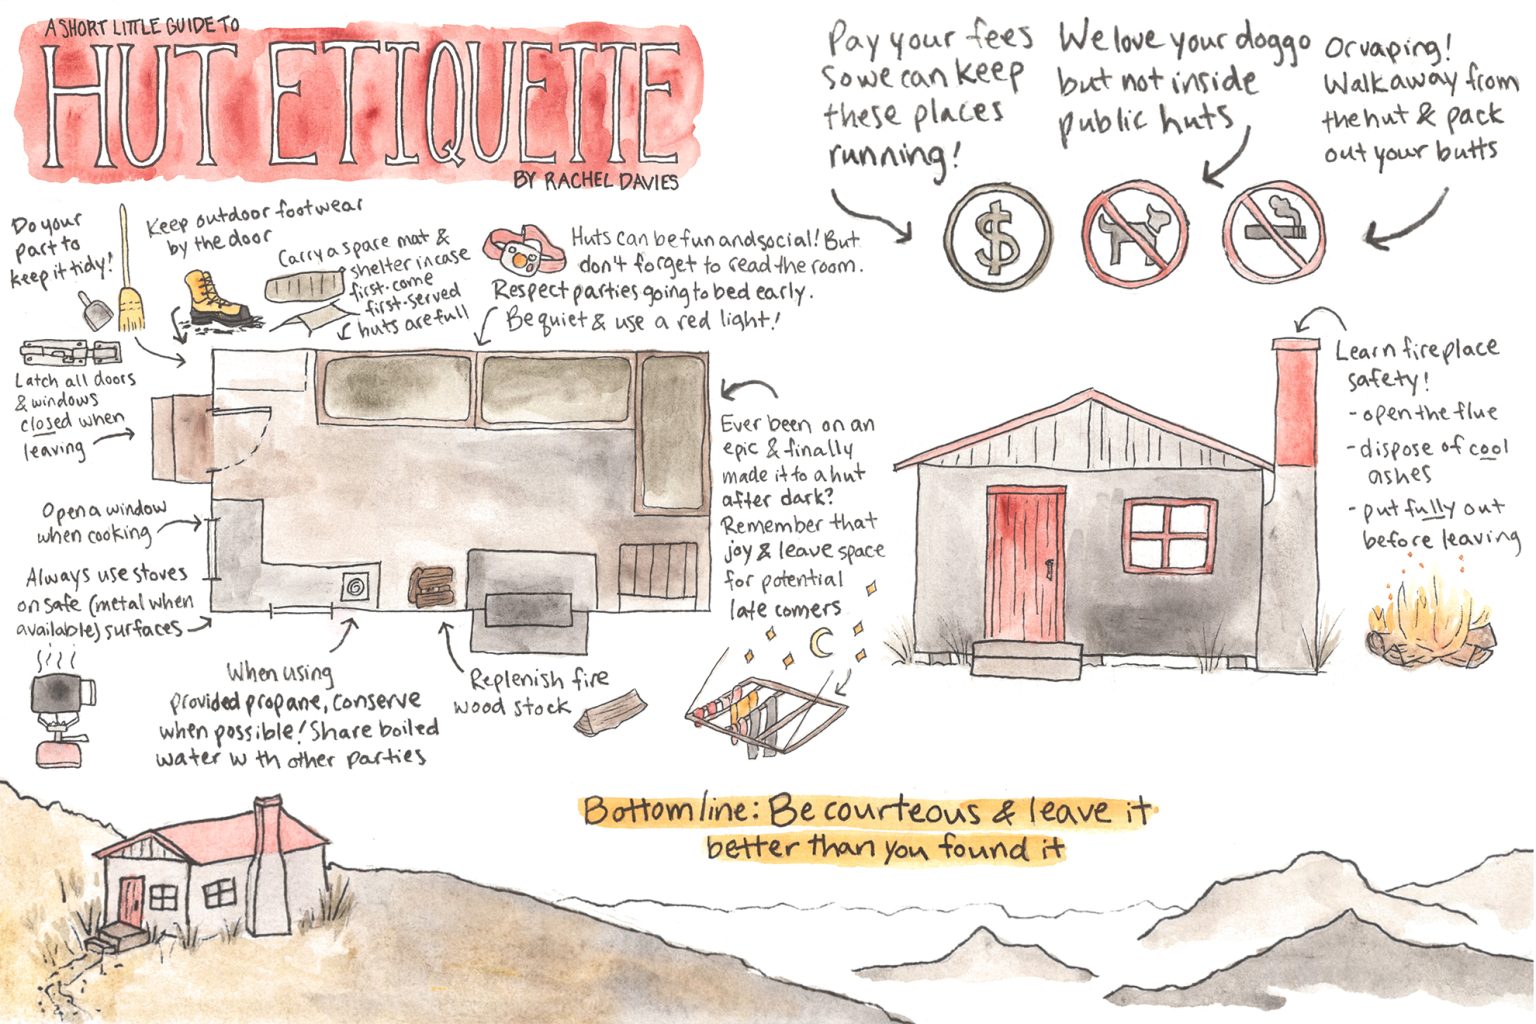 A SHORT LITTLE GUIDE TO
HUT ETIQUETTE
BY RACHEL DAVIES
Pay your fees
so we can keep
these places
running!
We love your doggo
but not inside
public huts
Or vaping!
Walk away from
the hut & pack
out your butts
$
Do your
part to
keep it tidy!
Keep outdoor footwear
by the door
Carry a spare mat &
shelter in case
first-come
first-served
huts are full
Huts can be fun and social! But
don't forget to read the room.
Respect parties going to bed early.
Be quiet & use a red light!
Latch all doors
& windows
closed when
leaving
Open a window
when cooking
Always use stoves
on safe (metal when
available) surfaces
When using
provided propane, conserve
when possible! Share boiled
water with other parties
Replenish fire
wood stock
Ever been on an
epic & finally
made it to a hut
after dark?
Remember that
joy & leave space
for potential
late comers
Learn fireplace
safety!
- open the flue
- dispose of cool
ashes
- put fully out
before leaving
Bottom line: Be courteous & leave it
better than you found it